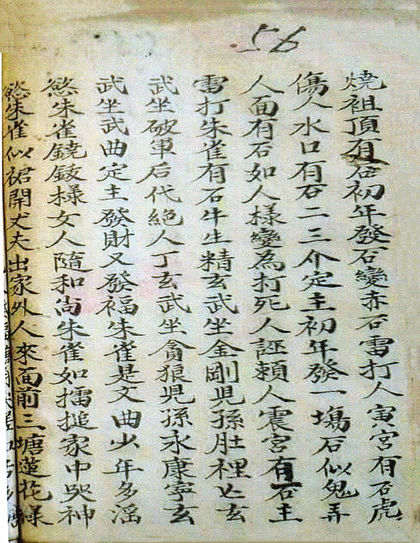 56
燒祖頂有石初年發石變赤石雷打人寅宮有石虎
傷人水口有石二三介定主初年發一塲石似鬼弄
人面有石如人樣變為打死人誣賴人震宮有石主
雷打朱雀有石牛生精玄武坐金剛児孫肚裡亡玄
武坐破軍后代絕人丁玄武坐貪狼児孫永康寧玄
武坐武曲定主發財又發福朱雀是文曲少年多淫
慾朱雀鐃鈸樣女人隨和尚朱雀如擂搥家中哭神
慾朱雀似裙開丈夫出家外人來面前三塘蓮花樣